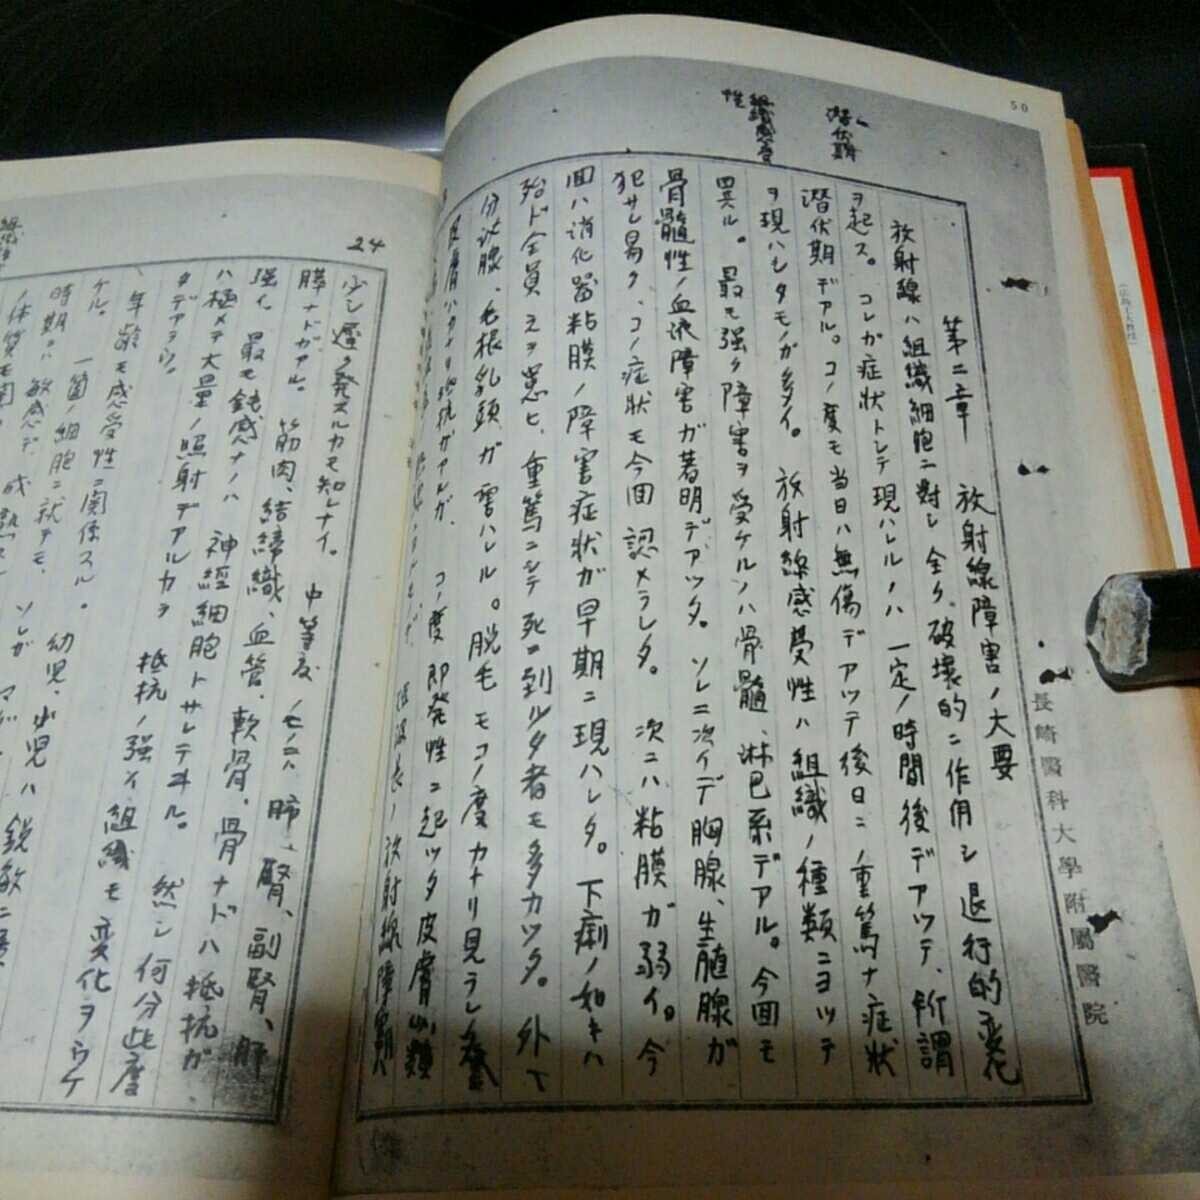 50
潜伏期
組織感受
性
第二章 放射線障害ノ大要
放射線ハ組織細胞ニ對シ全ク破壊的ニ作用シ退行的変化
ヲ起ス。コレガ症状トシテ現ハレルノハ一定ノ時間後デアツテ、所謂
潜伏期デアル。コノ度モ当日ハ無傷デアツテ後日ニ重篤ナ症状
ヲ現ハシタモノガ多イ。放射線感受性ハ組織ノ種類ニヨツテ
異ル。最モ強ク障害ヲ受ケルノハ骨髄、淋巴系デアル。今回モ
骨髄性ノ血液障害ガ著明デアツタ。ソレニ次イデ胸腺、生殖腺ガ
犯サレ易ク、コノ症状モ今回認メラレタ。次ニハ粘膜ガ弱イ。今
回ハ消化器粘膜ノ障害症状ガ早期ニ現ハレタ。下痢ノ如キハ
殆ド全員之ヲ患ヒ、重篤ニシテ死ニ到ツタ者モ多カツタ。外
分泌腺、毛根乳頭ガ害ハレル。脱毛モコノ度カナリ見ラレタ
皮膚ハカナリ抵抗ガアルガ、コノ度即発性ニ起ツタ皮膚
放射線障害ハ
長崎醫科大學附屬醫院
24
少シ遅ク発スルカモ知レナイ。中等度ノモノニハ肺、腎、副腎、肝
膵ナドガアル。筋肉、結締織、血管、軟骨、骨ナドハ抵抗ガ
強イ、最モ鈍感ナノハ神經細胞トサレテヰル。然シ何分此度
ハ極メテ大量ノ照射デアルカラ抵抗ノ強イ組織モ変化ヲウケ
タデアラウ。
年齢モ感受性ニ関係スル。幼児、小児ハ鋭敏ニ
ケル。一箇ノ細胞ニ就テモ、ソレガ
時期ニハ敏感デ、成熟
ノ体質モ関